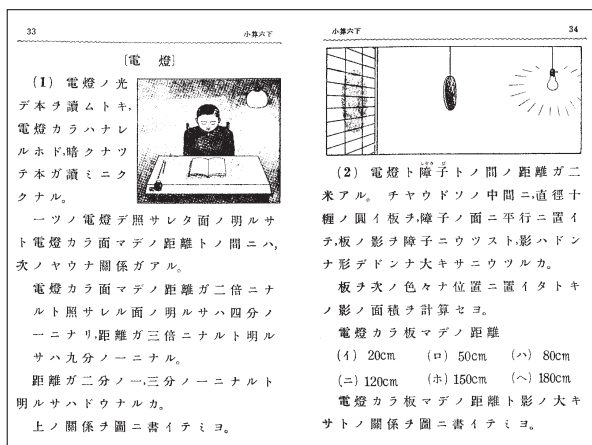 33 小算六下
[電 燈]
(1) 電燈ノ光
デ本ヲ讀ムトキ,
電燈カラハナレ
ルホド,暗クナツ
テ本ガ讀ミニク
クナル。
一ツノ電燈デ照サレタ面ノ明ルサ
ト電燈カラ面マデノ距離トノ間ニハ,
次ノヤウナ關係ガアル。
電燈カラ面マデノ距離ガ二倍ニナ
ルト照サレル面ノ明ルサハ四分ノ
一ニナリ,距離ガ三倍ニナルト明ル
サハ九分ノ一ニナル。
距離ガ二分ノ一,三分ノ一ニナルト
明ルサハドウナルカ。
上ノ關係ヲ圖ニ書イテミヨ。
小算六下 34
(2) 電燈ト障子トノ間ノ距離ガ二
米アル。 チヤウドソノ中間ニ,直徑十
糎ノ圓イ板ヲ,障子ノ面ニ平行ニ置イ
テ,板ノ影ヲ障子ニウツスト,影ハドン
ナ形デドンナ大キサニウツルカ。
板ヲ次ノ色々ナ位置ニ置イタトキ
ノ影ノ面積ヲ計算セヨ。
電燈カラ板マデノ距離
(イ) 20cm (ロ) 50cm (ハ) 80cm
(ニ) 120cm (ホ) 150cm (ヘ) 180cm
電燈カラ板マデノ距離ト影ノ大キ
サトノ關係ヲ圖ニ書イテミヨ。